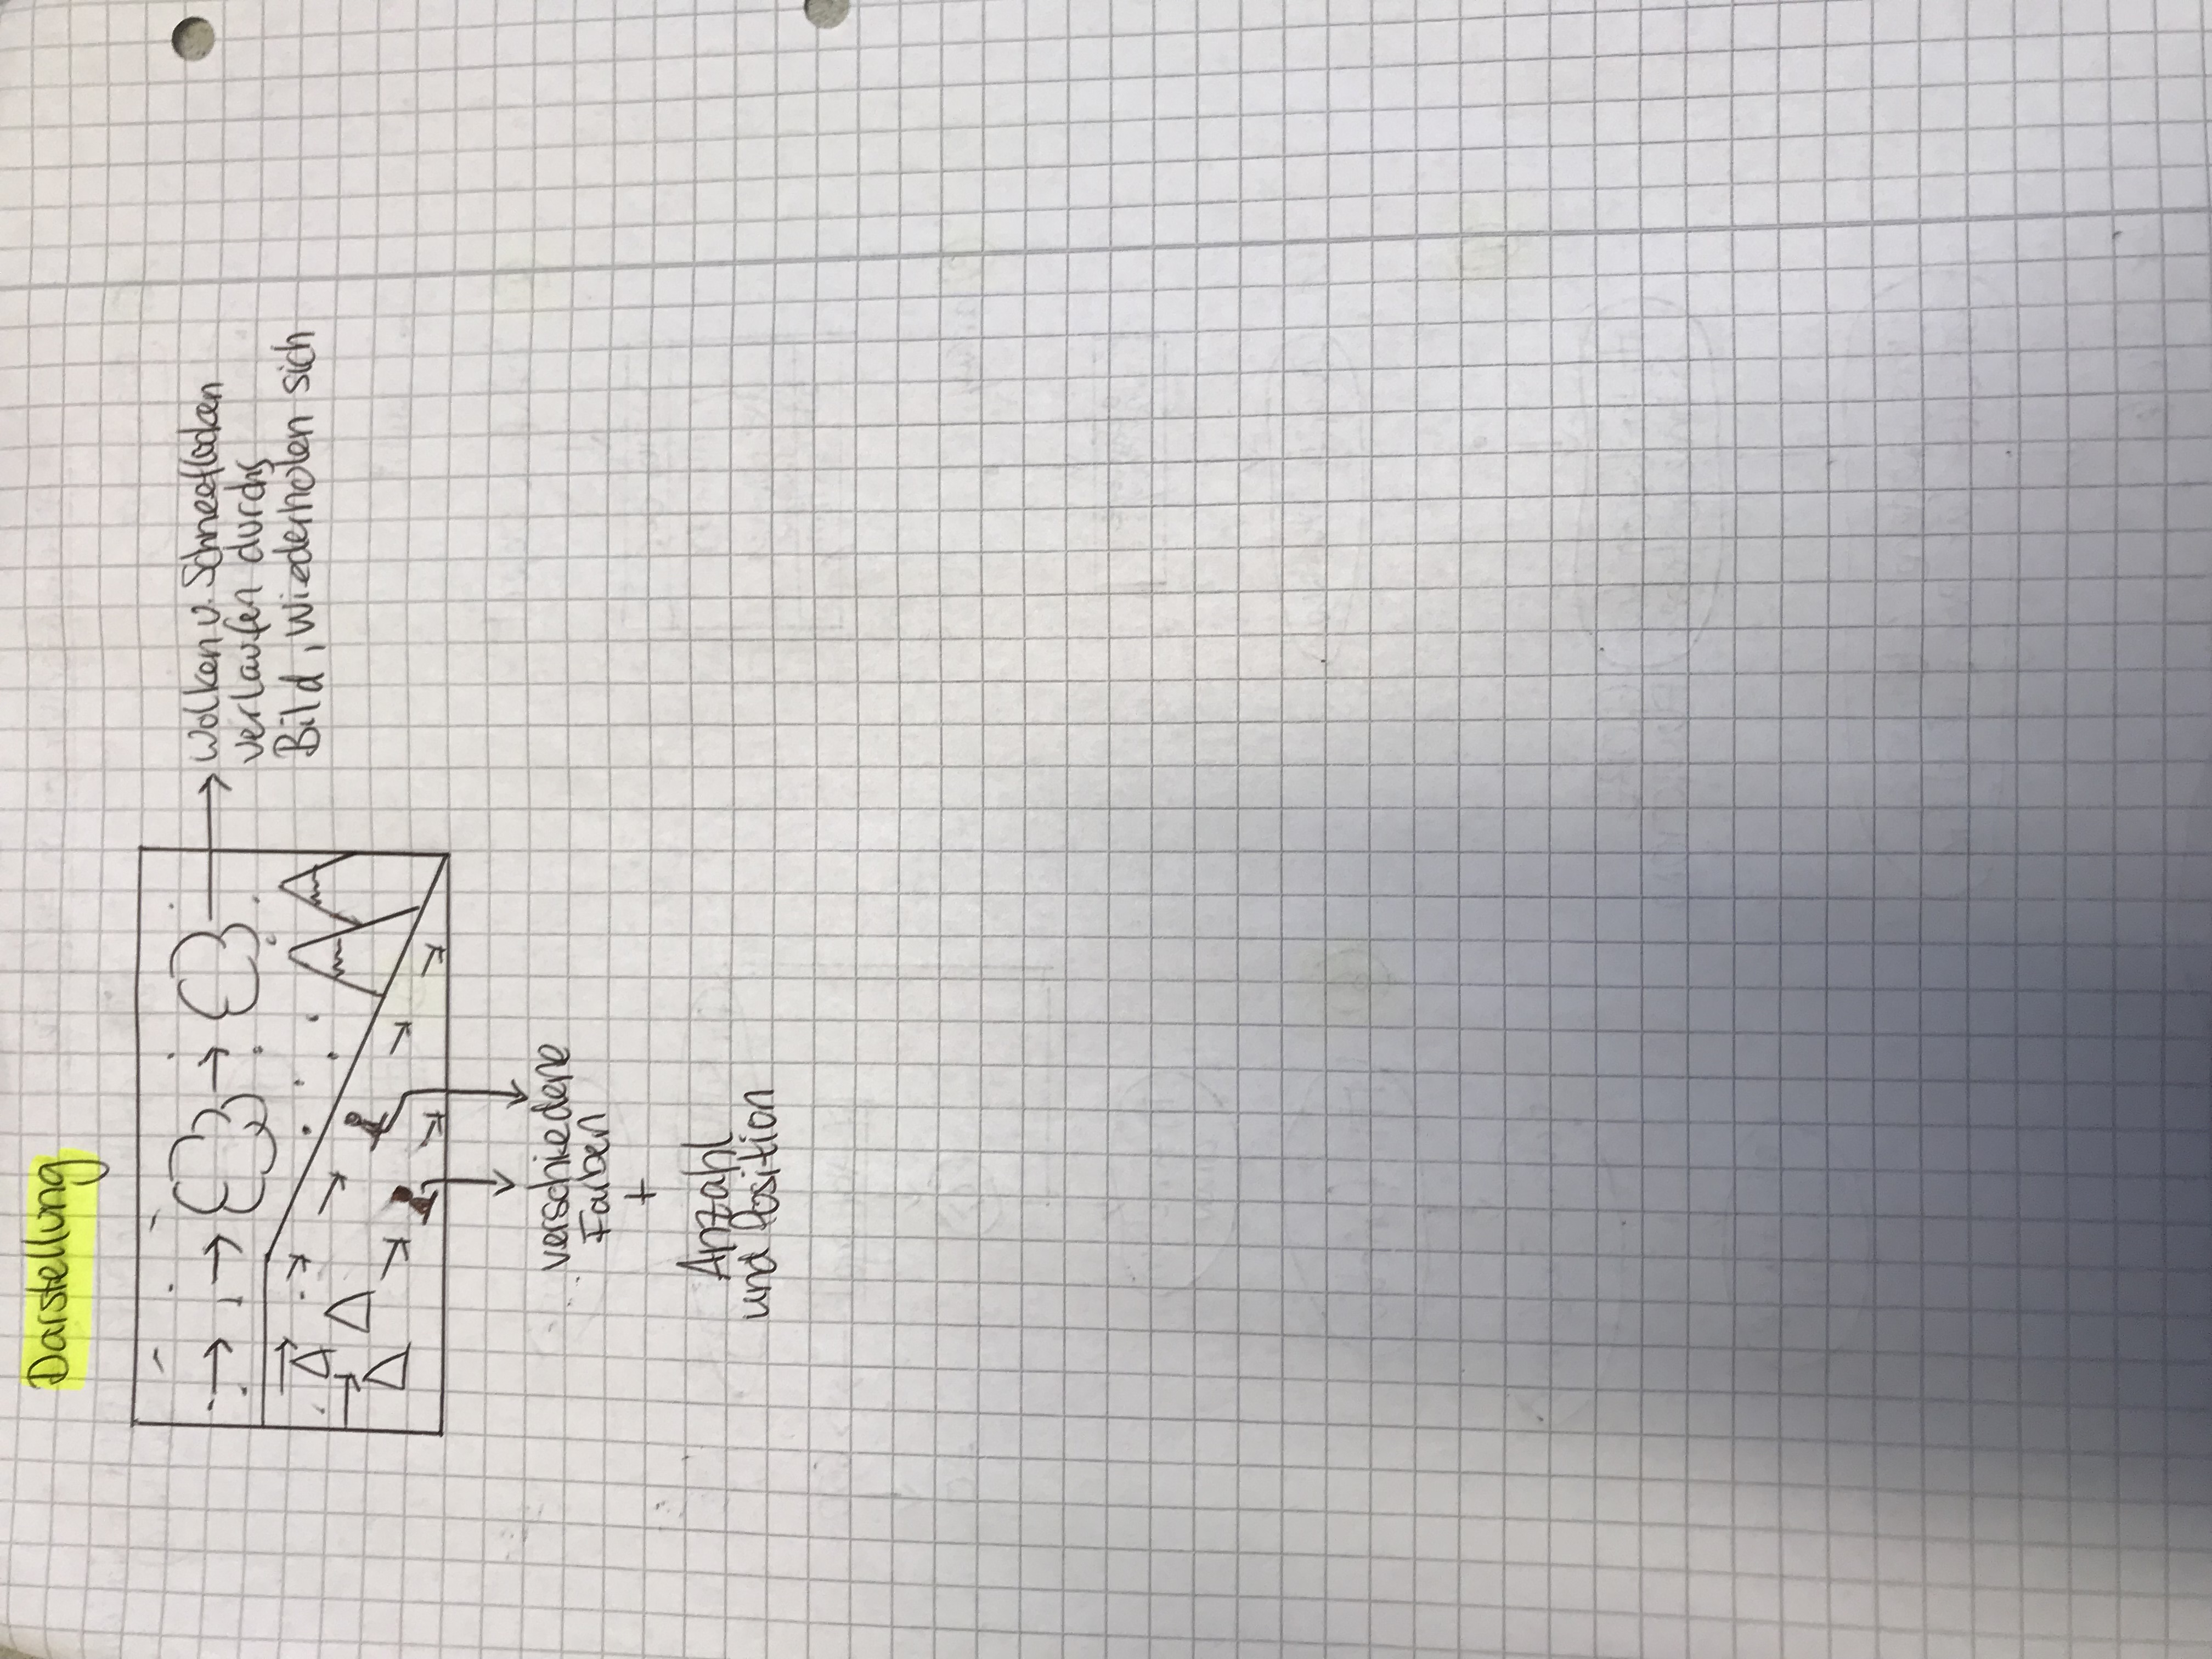 Darstellung
Wolken u. Schneeflocken
verlaufen durchs
Bild, Wiederholen sich
verschiedene
Farben
+
Anzahl
und Position